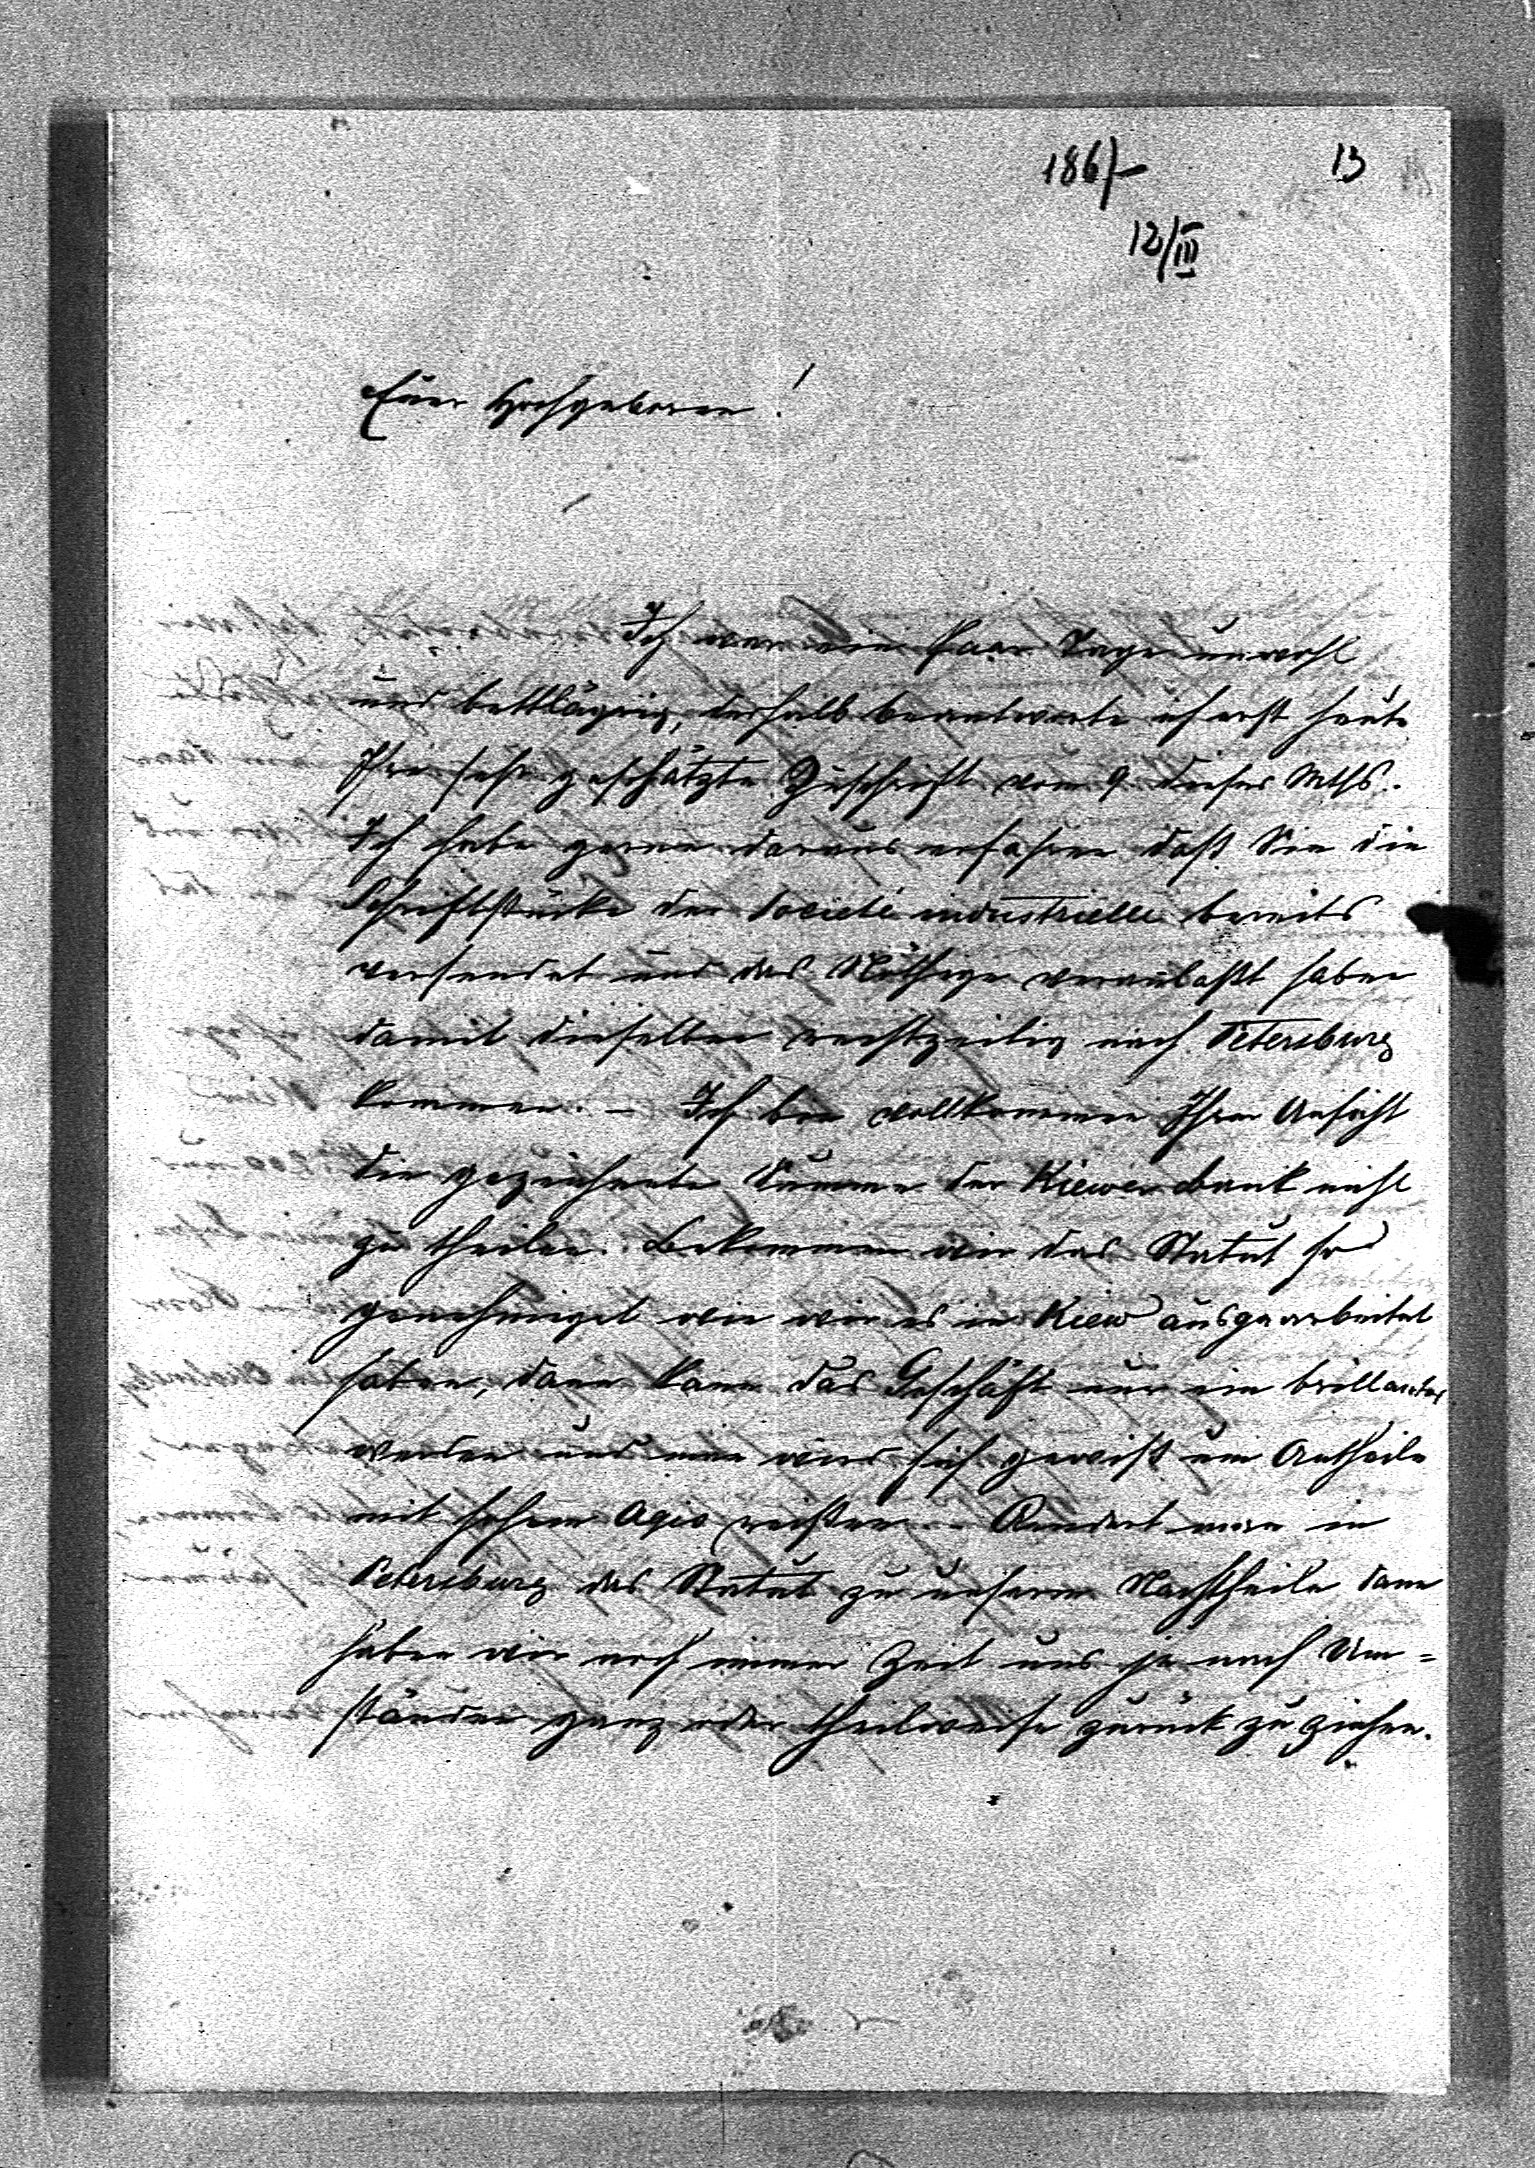 186/-
13
12/III
Euer Hochgeboren!
Ich war ein Paar Tage unwohl
und bettlägrig, deshalb beantworte ich erst heute
Ihre sehr geschätzte Zuschrift vom 9 dieses Mths.
Ich habe gerne daraus erfahren daß Sie die
Schriftstücke der Societé industrielle bereits
versendet und das Nöthige veranlaßt haben
damit dieselben rechtzeitig nach Petersburg
kommen. – Ich bin vollkommen Ihrer Ansicht
die gezeichnete Summe der Kiewer Bank nicht
zu theilen. Bekommen wir das Statut so
genehmiget wie wir es in Kiew ausgearbeitet
haben, dann kann das Geschäft nur ein brillantes
werden und man wird sich gewiß um Antheile
mit hohem Agio reißen. – Aendert man in
Petersburg das Statut zu unserem Nachtheile dann
haben wir noch immer Zeit uns je nach Um=
ständen ganz oder theilweise zurück zu ziehen.